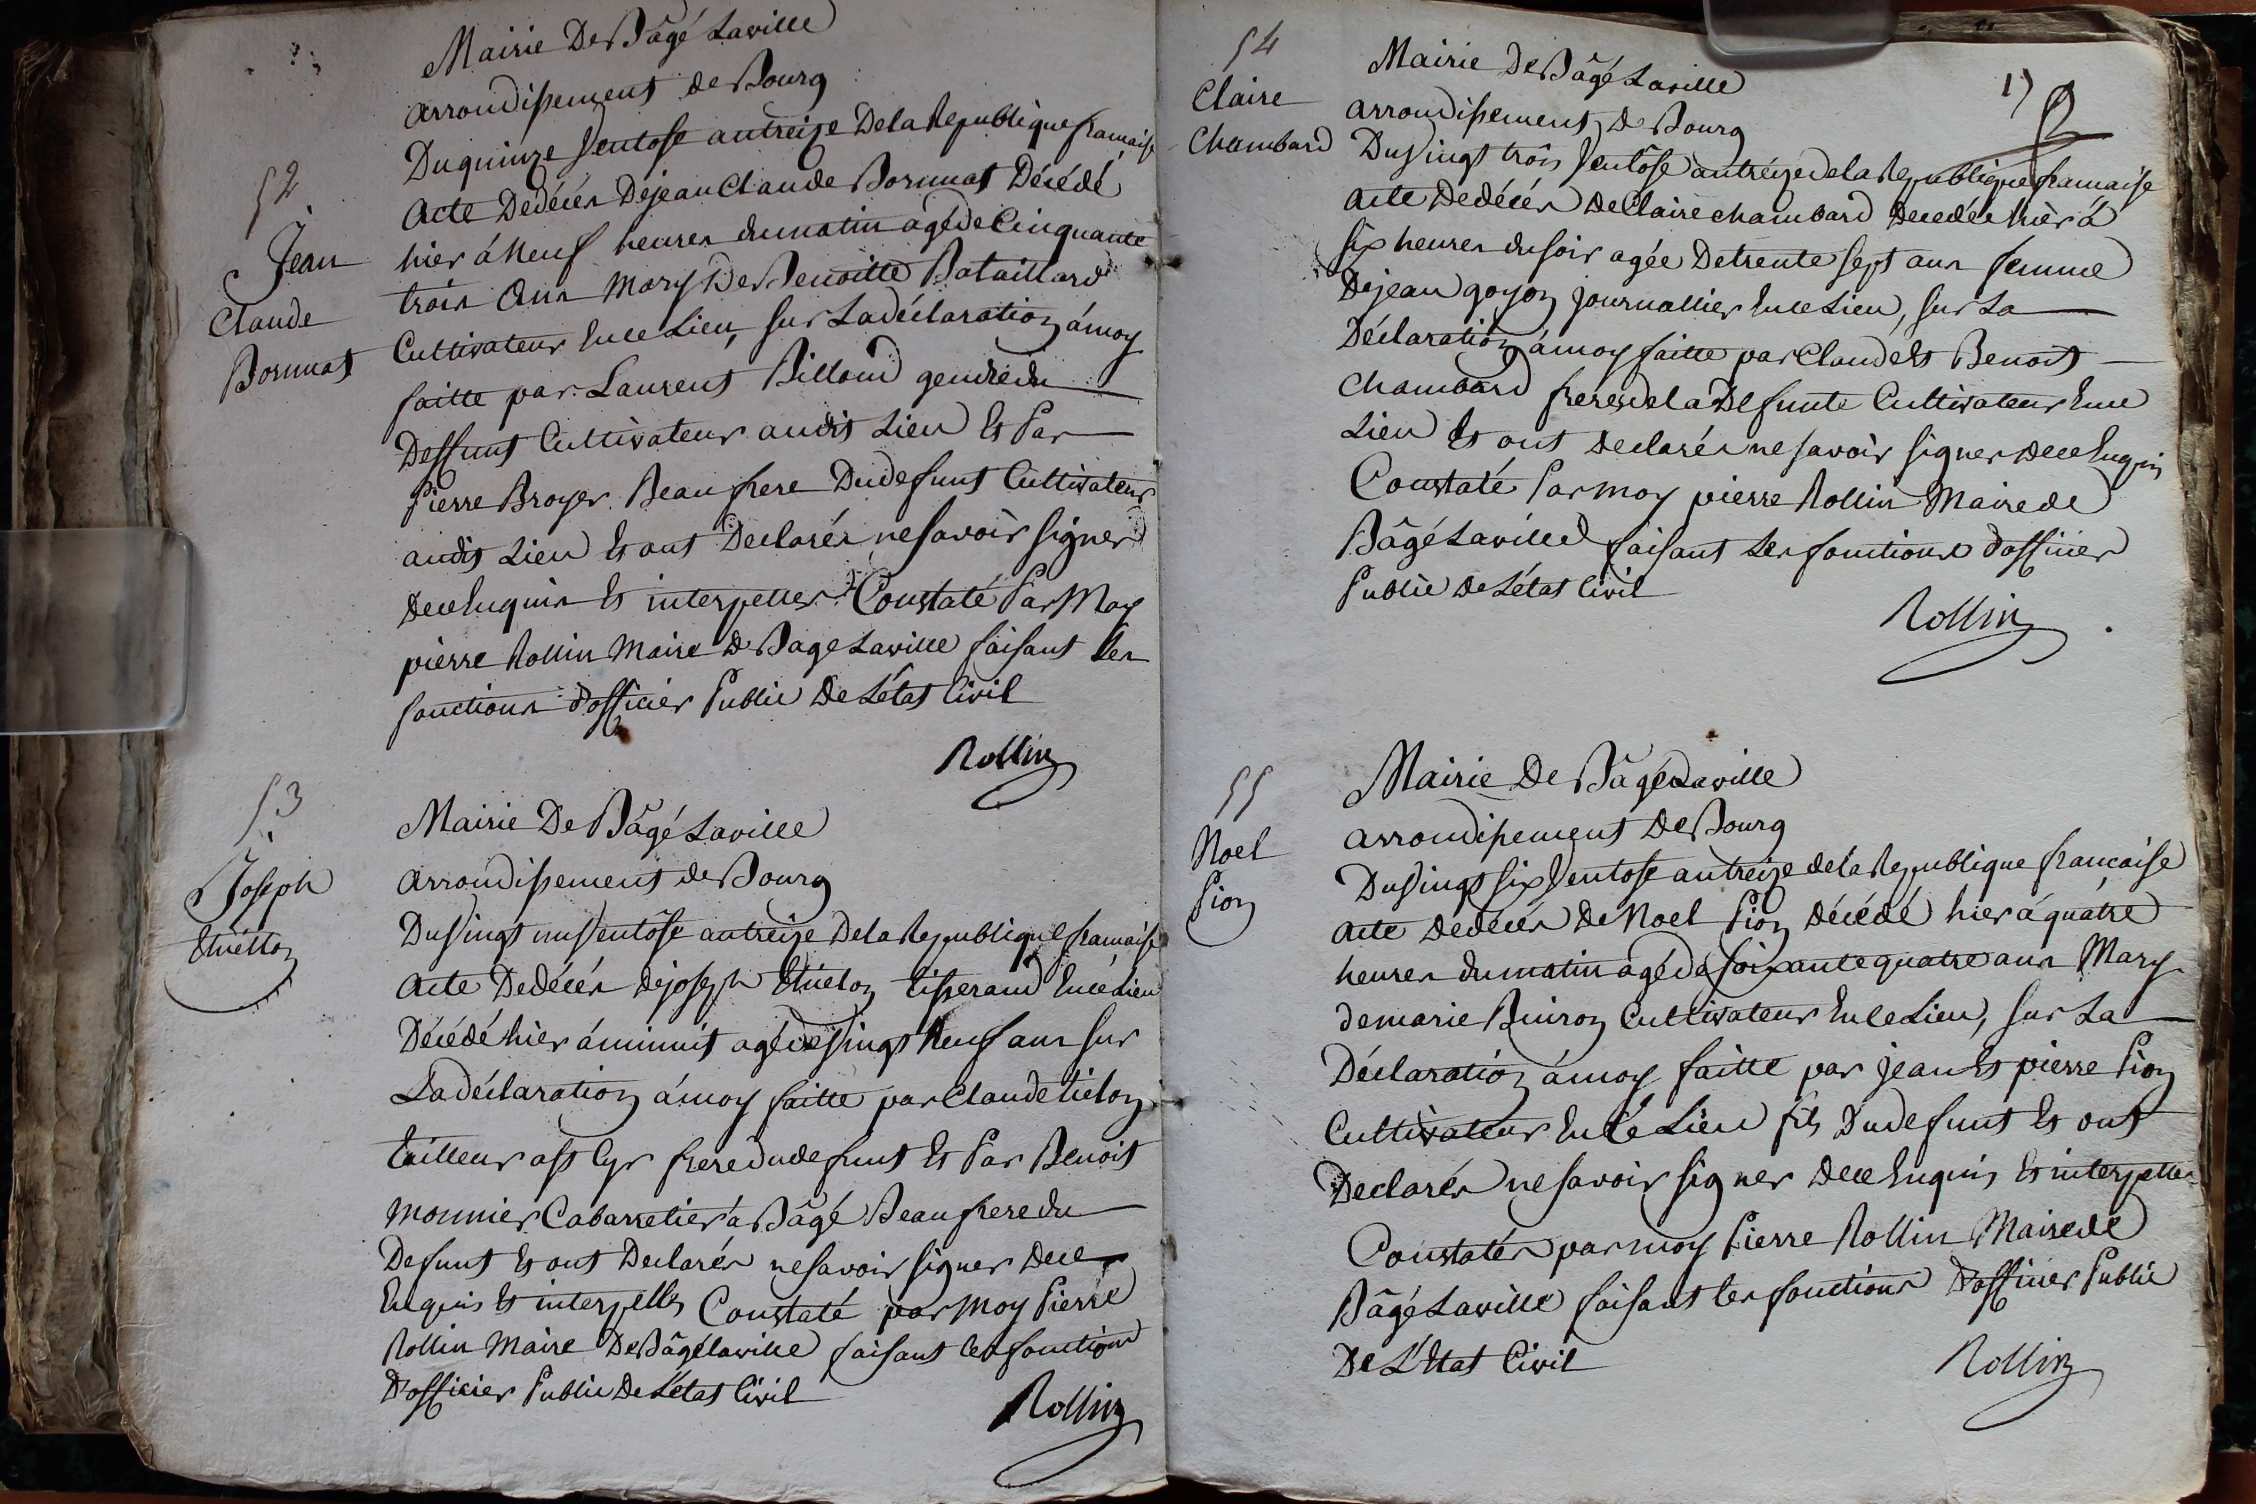 Mairie De Bâgé Laville
arrondissement de Bourg
Du quinze Ventose an treize De la Republique francaise
52
Jean
Claude
Bornnat
Acte De décés De jean Claude Bornnat Décédé
hier á Neuf heures du matin agé de Cinquante
trois Ans Mary De Benoitte Bataillard
Cultivateur En ce Lieu, sur La déclaration á moy
faitte par Laurent Billoud gendre du
Deffunt Cultivateur audit Lieu Et Par
Pierre Broyer Beau frere Du defunt Cultivateur
audit Lieu Et ont Declarés ne savoir signer
De ce Enquis Et interpellés Constaté Par Moy
pierre Rollin Maire De Bage Laville faisant Les
fonctions D'officier Public De L'état Civil
Rollin
53
Joseph
Mairie De Bâgé Laville
arrondissement de Bourg
Du Vingt un Ventôse an treize De la Republique francaise
Acte De décés De joseph tisserand En cé Lieu
Décédé hier á minuit agé de Vingt Neuf ans sur
La déclaration á moy faitte par Claude
tailleur a st Cyr frere du defunt Et Par Benoit
Monnier Cabarretier á Bâgé Beau frere du
Defunt Et ont Declarés ne savoir signer De ce
Enquis Et interpellés Constaté par Moy Pierre
Rollin Maire De Bâgé laville faisant les fonctions
D'officier Public De L'état Civil
Rollin
54
Claire
Chambard
17
Mairie De Bâgé Laville
arrondissement De Bourg
Du Vingt trois Ventôse an tréize de la Republique francaise
Acte De décés De Claire chambard Decedée hièr á
six heures du soir agée De trente sept ans femme
De jean goyon journallier En ce Lieu, sur La
Déclaration á moy faitte par Claude Et Benoit
Chambard freres de la Defunte Cultivateur En ce
Lieu Et ont Declarés ne savoir signer De ce Enquis
Constaté Par moy pierre Rollin Maire de
Bâgé Laville faisant Les fonctions D'officier
Public De L'état Civil
Rollin
55
Noel
Pion
Mairie De Bâgé Laville
arrondissement De Bourg
Du Vingt six Ventôse an treize de la Republique francaise
Acte De décés De Noel Pion Décédé hier á quatre
heures du matin agé de soixante quatre ans Mary
de marie Buiron Cultivateur En ce Lieu, sur La
Déclaration á moy faitte par jean Et pierre Pion
Cultivateur En cé Lieu fils Du defunt Et ont
Declarés ne savoir signer De ce Enquis Et interpellés
Constatés par moy Pierre Rollin Maire de
Bâgé Laville faisant les fonctions D'officier Public
De L'Etat Civil
Rollin